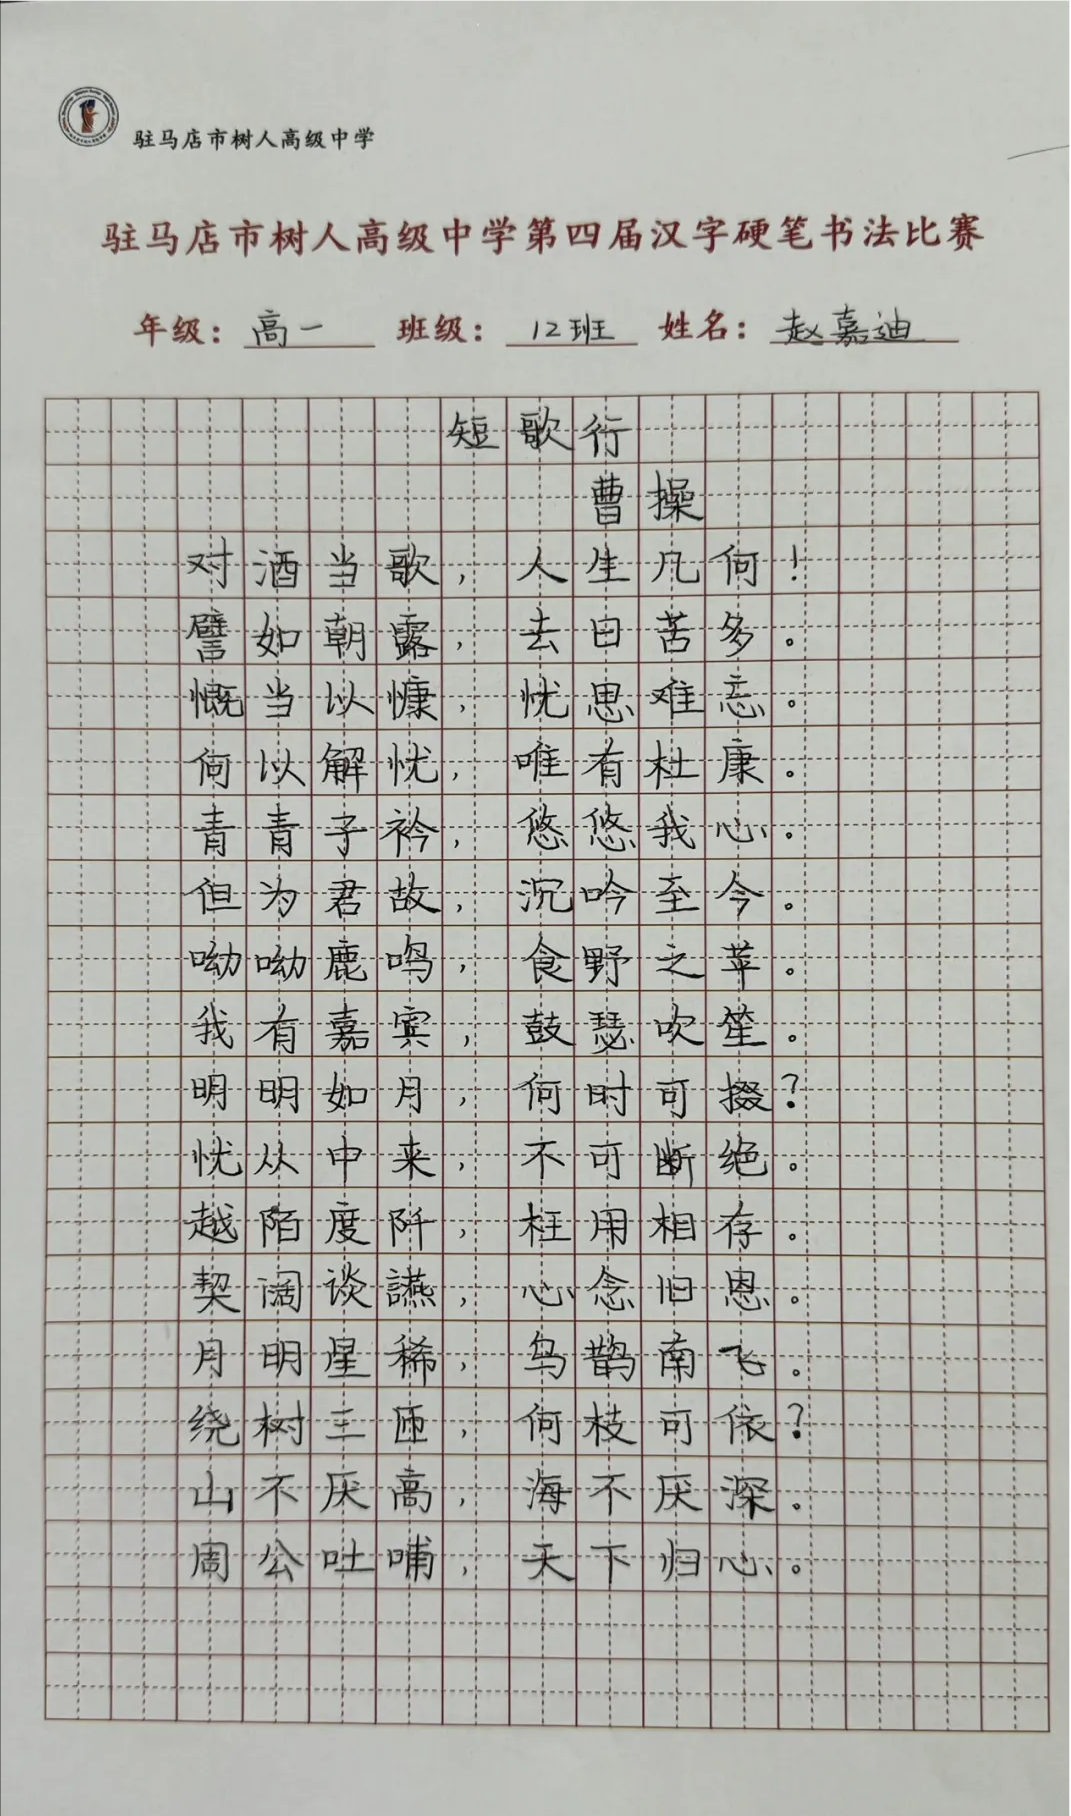 驻马店市树人高级中学
驻马店市树人高级中学第四届汉字硬笔书法比赛
年级：高一 班级：12班 姓名：赵嘉迪
短歌行
曹操
对酒当歌，人生几何！
譬如朝露，去日苦多。
慨当以慷，忧思难忘。
何以解忧，唯有杜康。
青青子衿，悠悠我心。
但为君故，沉吟至今。
呦呦鹿鸣，食野之苹。
我有嘉宾，鼓瑟吹笙。
明明如月，何时可掇？
忧从中来，不可断绝。
越陌度阡，枉用相存。
契阔谈讌，心念旧恩。
月明星稀，乌鹊南飞。
绕树三匝，何枝可依？
山不厌高，海不厌深。
周公吐哺，天下归心。